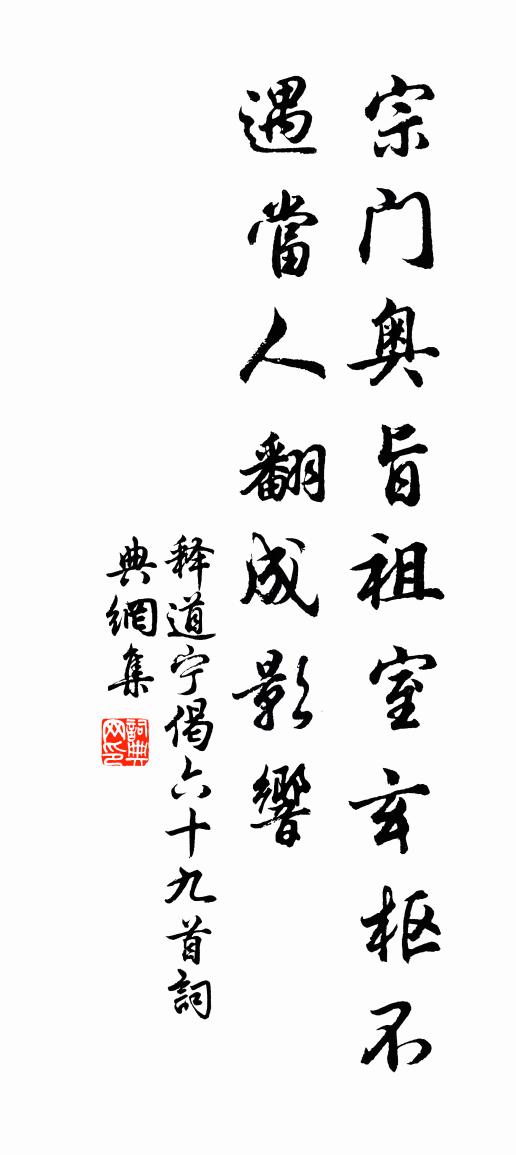 宗门奥旨祖室玄枢不
遇當人翻成影響
释道宁偈六十九首詞
典網集
詞典
网印